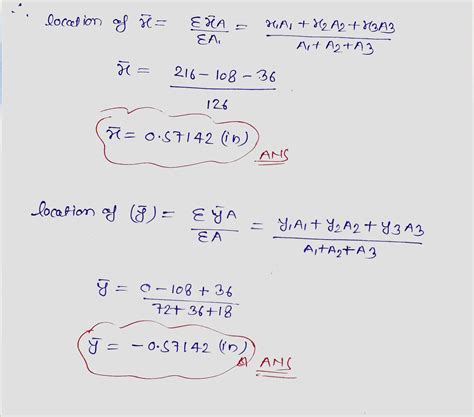 ∴ location of x̄ = Σx̄A / ΣA₁ = x₁A₁ + x₂A₂ + x₃A₃ / A₁ + A₂ + A₃
x̄ = 216 - 108 - 36 / 126
x̄ = 0.57142 (in)
ANS
location of (ȳ) = ΣȳA / ΣA = y₁A₁ + y₂A₂ + y₃A₃ / A₁ + A₂ + A₃
ȳ = 0 - 108 + 36 / 72 + 36 + 18
ȳ = -0.57142 (in)
ANS